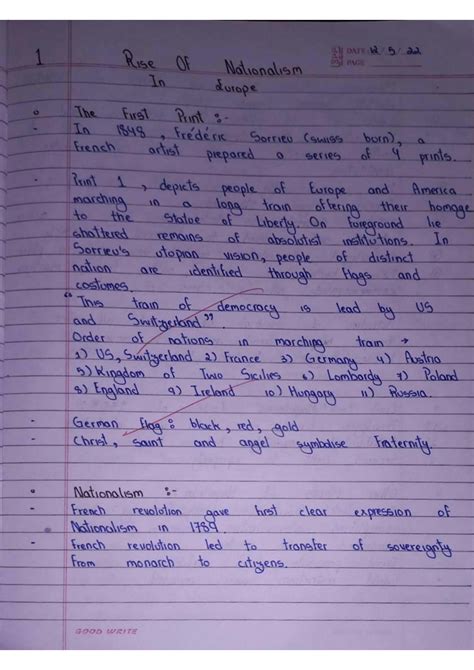 1
Rise Of Nationalism
DATE 12/5/22
PAGE
In Europe
The First Print :-
- In 1848, Frédéric Sorrieu (swiss born), a
French artist prepared a series of 4 prints.
- Print 1, depicts people of Europe and America
marching in a long train offering their homage
to the Statue of Liberty. On foreground lie
shattered remains of absolutist institutions. In
Sorrieu's utopian vision, people of distinct
nation are identified through flags and
costumes.
"This train of democracy is lead by US
and Switzerland".
Order of nations in marching train →
1) US, Switzerland 2) France 3) Germany 4) Austria
5) Kingdom of Two Sicilies 6) Lombardy 7) Poland
8) England 9) Ireland 10) Hungary 11) Russia.
- German flag : black, red, gold
- Christ, saint and angel symbolise Fraternity.
Nationalism :-
- French revolution gave first clear expression of
Nationalism in 1789.
- French revolution led to transfer of sovereignty
from monarch to citizens.
GOOD WRITE